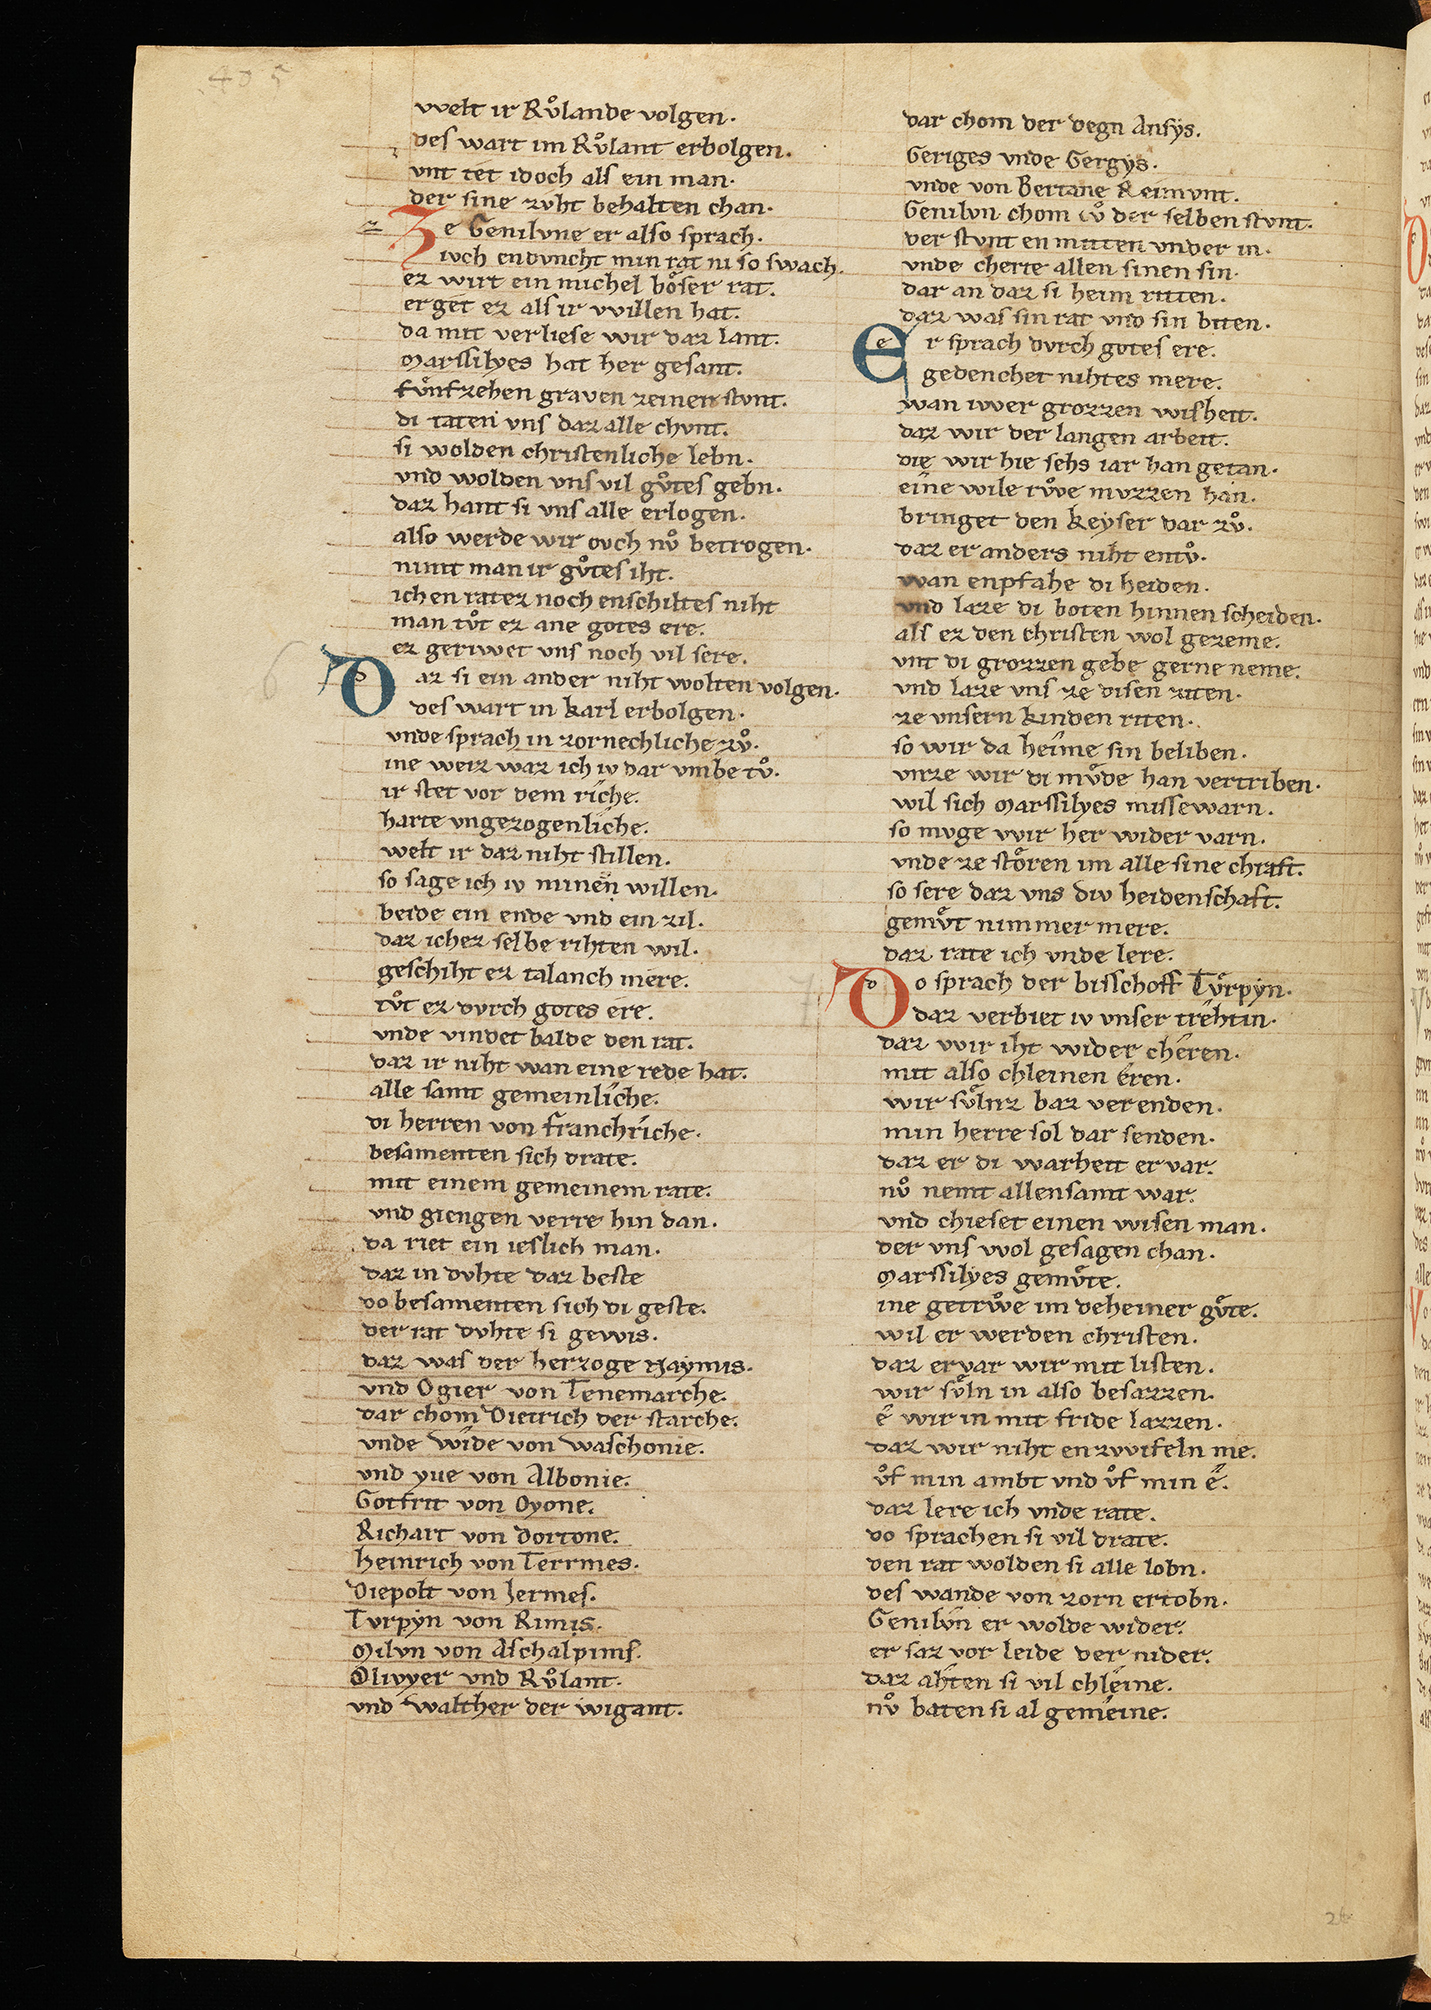 405
welt ir Ruͦlande volgen·
des wart im Ruͦlant erbolgen·
vnt tet idoch als ein man·
der sine zvht behalten chan·
Ze Genilvne er also sprach·
ivch endvncht min rat ni so swach·
ez wirt ein michel boͤser rat·
erget ez als ir willen hat·
da mit verliese wir daz lant·
Marssilyes hat her gesant·
fvͤnfzehen graven zeinen stvnt·
di taten vns daz alle chvnt·
si wolden christenliche lebn·
vnd wolden vns vil guͦtes gebn·
daz hant si vns alle erlogen·
also werde wir ovch nvͦ betrogen·
nimt man ir guͦtes iht·
ich en ratez noch enschiltes niht
man tuͦt ez ane gotes ere·
ez geriwet vns noch vil sere·
Daz si ein ander niht wolten volgen·
des wart in karl erbolgen·
vnde sprach in zornechliche zvͦ·
ine weiz waz ich iv dar vmbe tvͦ·
ir stet vor dem riche·
harte vngezogenliche·
welt ir daz niht stillen·
so sage ich iv minen willen·
beide ein ende vnd ein zil·
daz ichez selbe rihten wil·
geschiht ez talanch mere·
tuͦt ez dvrch gotes ere·
vnde vindet balde den rat·
daz ir niht wan eine rede hat·
alle samt gemeinliche·
di herren von franchriche·
besamenten sich drate·
mit einem gemeinem rate·
vnd giengen verre hin dan·
da riet ein ieslich man·
daz in dvhte daz beste
do besamenten sich di geste·
der rat dvhte si gewis·
daz was der herzoge Naymis·
vnd Ogier von Tenemarche·
dar chom Dietrich der starche·
vnde Wide von Waschonie·
vnd yue von Albonie·
Gotfrit von Oyone·
Richart von Dortone·
Heinrich von Terrmes·
Diepolt von Iermes·
Tvrpyn von Rimis·
Milvn von Aschalpims·
Olivyer vnd Ruͦlant·
vnd Walther der wigant·
dar chom der degn Ansys·
Geriges vnde Gergys·
vnde von Bertane Reimvnt·
Genilvn chom zvͦ der selben stvnt·
der stvnt en mitten vnder in·
vnde cherte allen sinen sin·
dar an daz si heim ritten·
daz was sin rat vnd sin biten·
Er sprach dvrch gotes ere·
gedenchet nihtes mere·
wan iwer grozzen wisheit·
daz wir der langen arbeit·
die wir hie sehs iar han getan·
eine wile rvͦve mvzzen han·
bringet den keyser dar zvͦ·
daz er anders niht entvͦ·
wan enpfahe di heiden·
vnd laze di boten hinnen scheiden·
als ez den christen wol gezeme·
vnt di grozzen gebe gerne neme·
vnd laze vns ze disen ziten·
ze vnsern kinden riten·
so wir da heime sin beliben·
vnze wir di mvͤde han vertriben·
wil sich Marssilyes missewarn·
so mvge wir her wider varn·
vnde ze stoͤren im alle sine chraft·
so sere daz vns div heidenschaft·
gemvͤt nimmer mere·
daz rate ich vnde lere·
Do sprach der bisschoff Tvͤrpyn·
daz verbiet iv vnser trehtin·
daz wir iht wider cheren·
mit also chleinen eren·
wir svͤlnz baz verenden·
min herre sol dar senden·
daz er di warheit ervar·
nvͦ nemt allensamt war·
vnd chieset einen wisen man·
der vns wol gesagen chan·
Marssilyes gemvͤte·
ine getrvͦwe im deheiner gvͤte·
wil er werden christen·
daz ervar wir mit listen·
wir svͤln in also besazzen·
e wir in mit fride lazzen·
daz wir niht en zwifeln me·
vͦf min ambt vnd vͦf min e·
daz lere ich vnde rate·
do sprachen si vil drate·
den rat wolden si alle lobn·
des wande von zorn ertobn·
Genilvn er wolde wider·
er saz vor leide der nider·
daz ahten si vil chleine·
nvͦ baten si al gemeine·
26